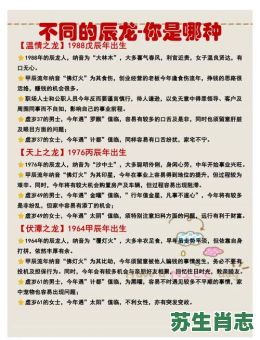 不同的辰龙-你是哪种
【温情之龙】1988戊辰年出生
1988年的辰龙人,纳音为“大林木”,大多喜气春风,利官近贵,女子温良贤达,有
口无心。
甲辰流年纳音“佛灯火”为其食伤,创业经营的老板今年逢食伤流年,挣钱的思路很
活络,赚钱的机会很多。
职场人士和公职人员今年反而要谨言慎行,待人谦逊,以免无意中得罪领导、客户及
周围同事而不自知,影响自己的前程。
虚岁37的男士,今年遇“罗睺”值临,今年会有不少的口舌是非,同时也须留意肝脏
及眼目方面的问题;
虚岁37的女士,今年遇“计都”值临,同样容易有口舌纷扰,家宅不宁。
【天上之龙】1976丙辰年出生
1976年的辰龙人,纳音为“沙中土”,大多聪明伶俐,身闲心劳,中年开始事业兴旺。
甲辰流年纳音“佛灯火”为其印星,今年在事业上容易得到地位的提升,但过程较为
艰辛。同时,今年将会有较大机会购置房产及车辆,但过程容易出现阻滞。
虚岁49的男士,今年遇“金星”值临,“行年值金星,凡事不遂心”,今年将会有较
多忽乱,但家中容易有添丁的机会;
虚岁49的女士,今年遇“太阴”值临,须特别注意妇科方面的问题,运行有利于财富。
【伏潭之龙】1964甲辰年出生
1964年的辰龙人,纳音为“覆灯火”,大多丰衣足食,早年后走势平淡,但依靠自身
打拼,依然丰厚有余。
甲辰流年纳音“佛灯火”为其比劫,今年会出现一些影响判断的事情发生。务必不要有
投机及担保行为。同时,今年会有较多机会与亲朋好友相聚,回忆往日时光,散心除疑。
虚岁61的男士,今年遇“计都”值临,为黑曜,容易不遇到或多或少不平顺的事情,家
中宠物也容易出现问题。
虚岁61的女士,今年遇“太阳”值临,不利女性,亦有突发变故。
苏生肖志